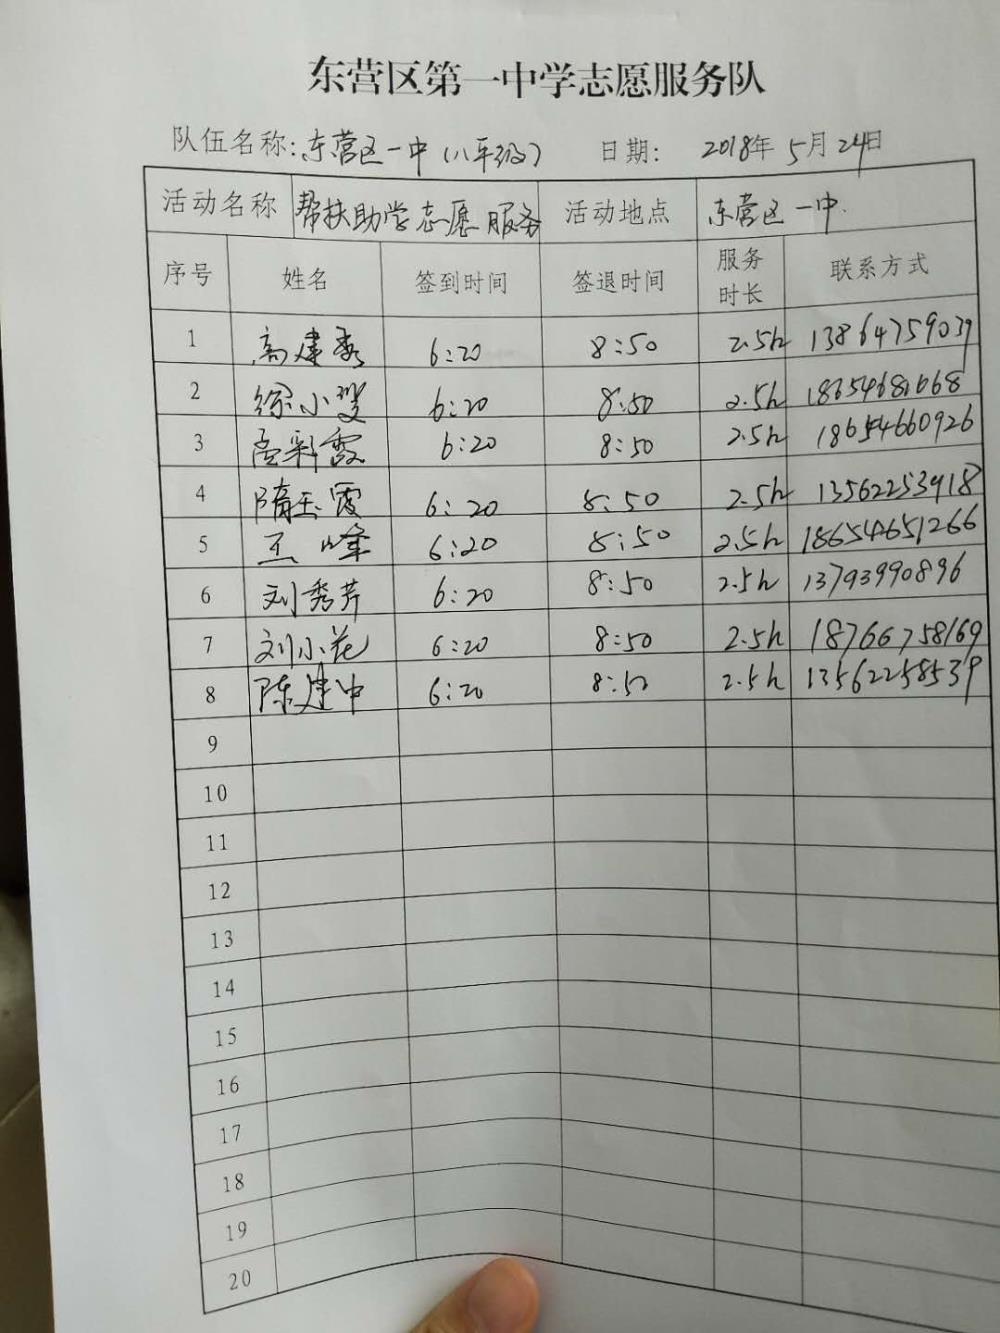 东营区第一中学志愿服务队
队伍名称:东营区一中(八年级) 日期: 2018年5月24日
活动名称 帮扶助学志愿服务 活动地点 东营区一中.
序号 姓名 签到时间 签退时间 服务时长 联系方式
1 高建秀 6:20 8:50 2.5h 13864759039
2 徐小叟 6:20 8:50 2.5h 18654681668
3 彩霞 6:20 8:50 2.5h 18654660926
4 隋玉霞 6:20 8:50 2.5h 13562253918
5 王峰 6:20 8:50 2.5h 18654651266
6 刘秀芹 6:20 8:50 2.5h 13793990896
7 刘小花 6:20 8:50 2.5h 18766758169
8 陈建中 6:20 8:50 2.5h 13562258539
9
10
11
12
13
14
15
16
17
18
19
20